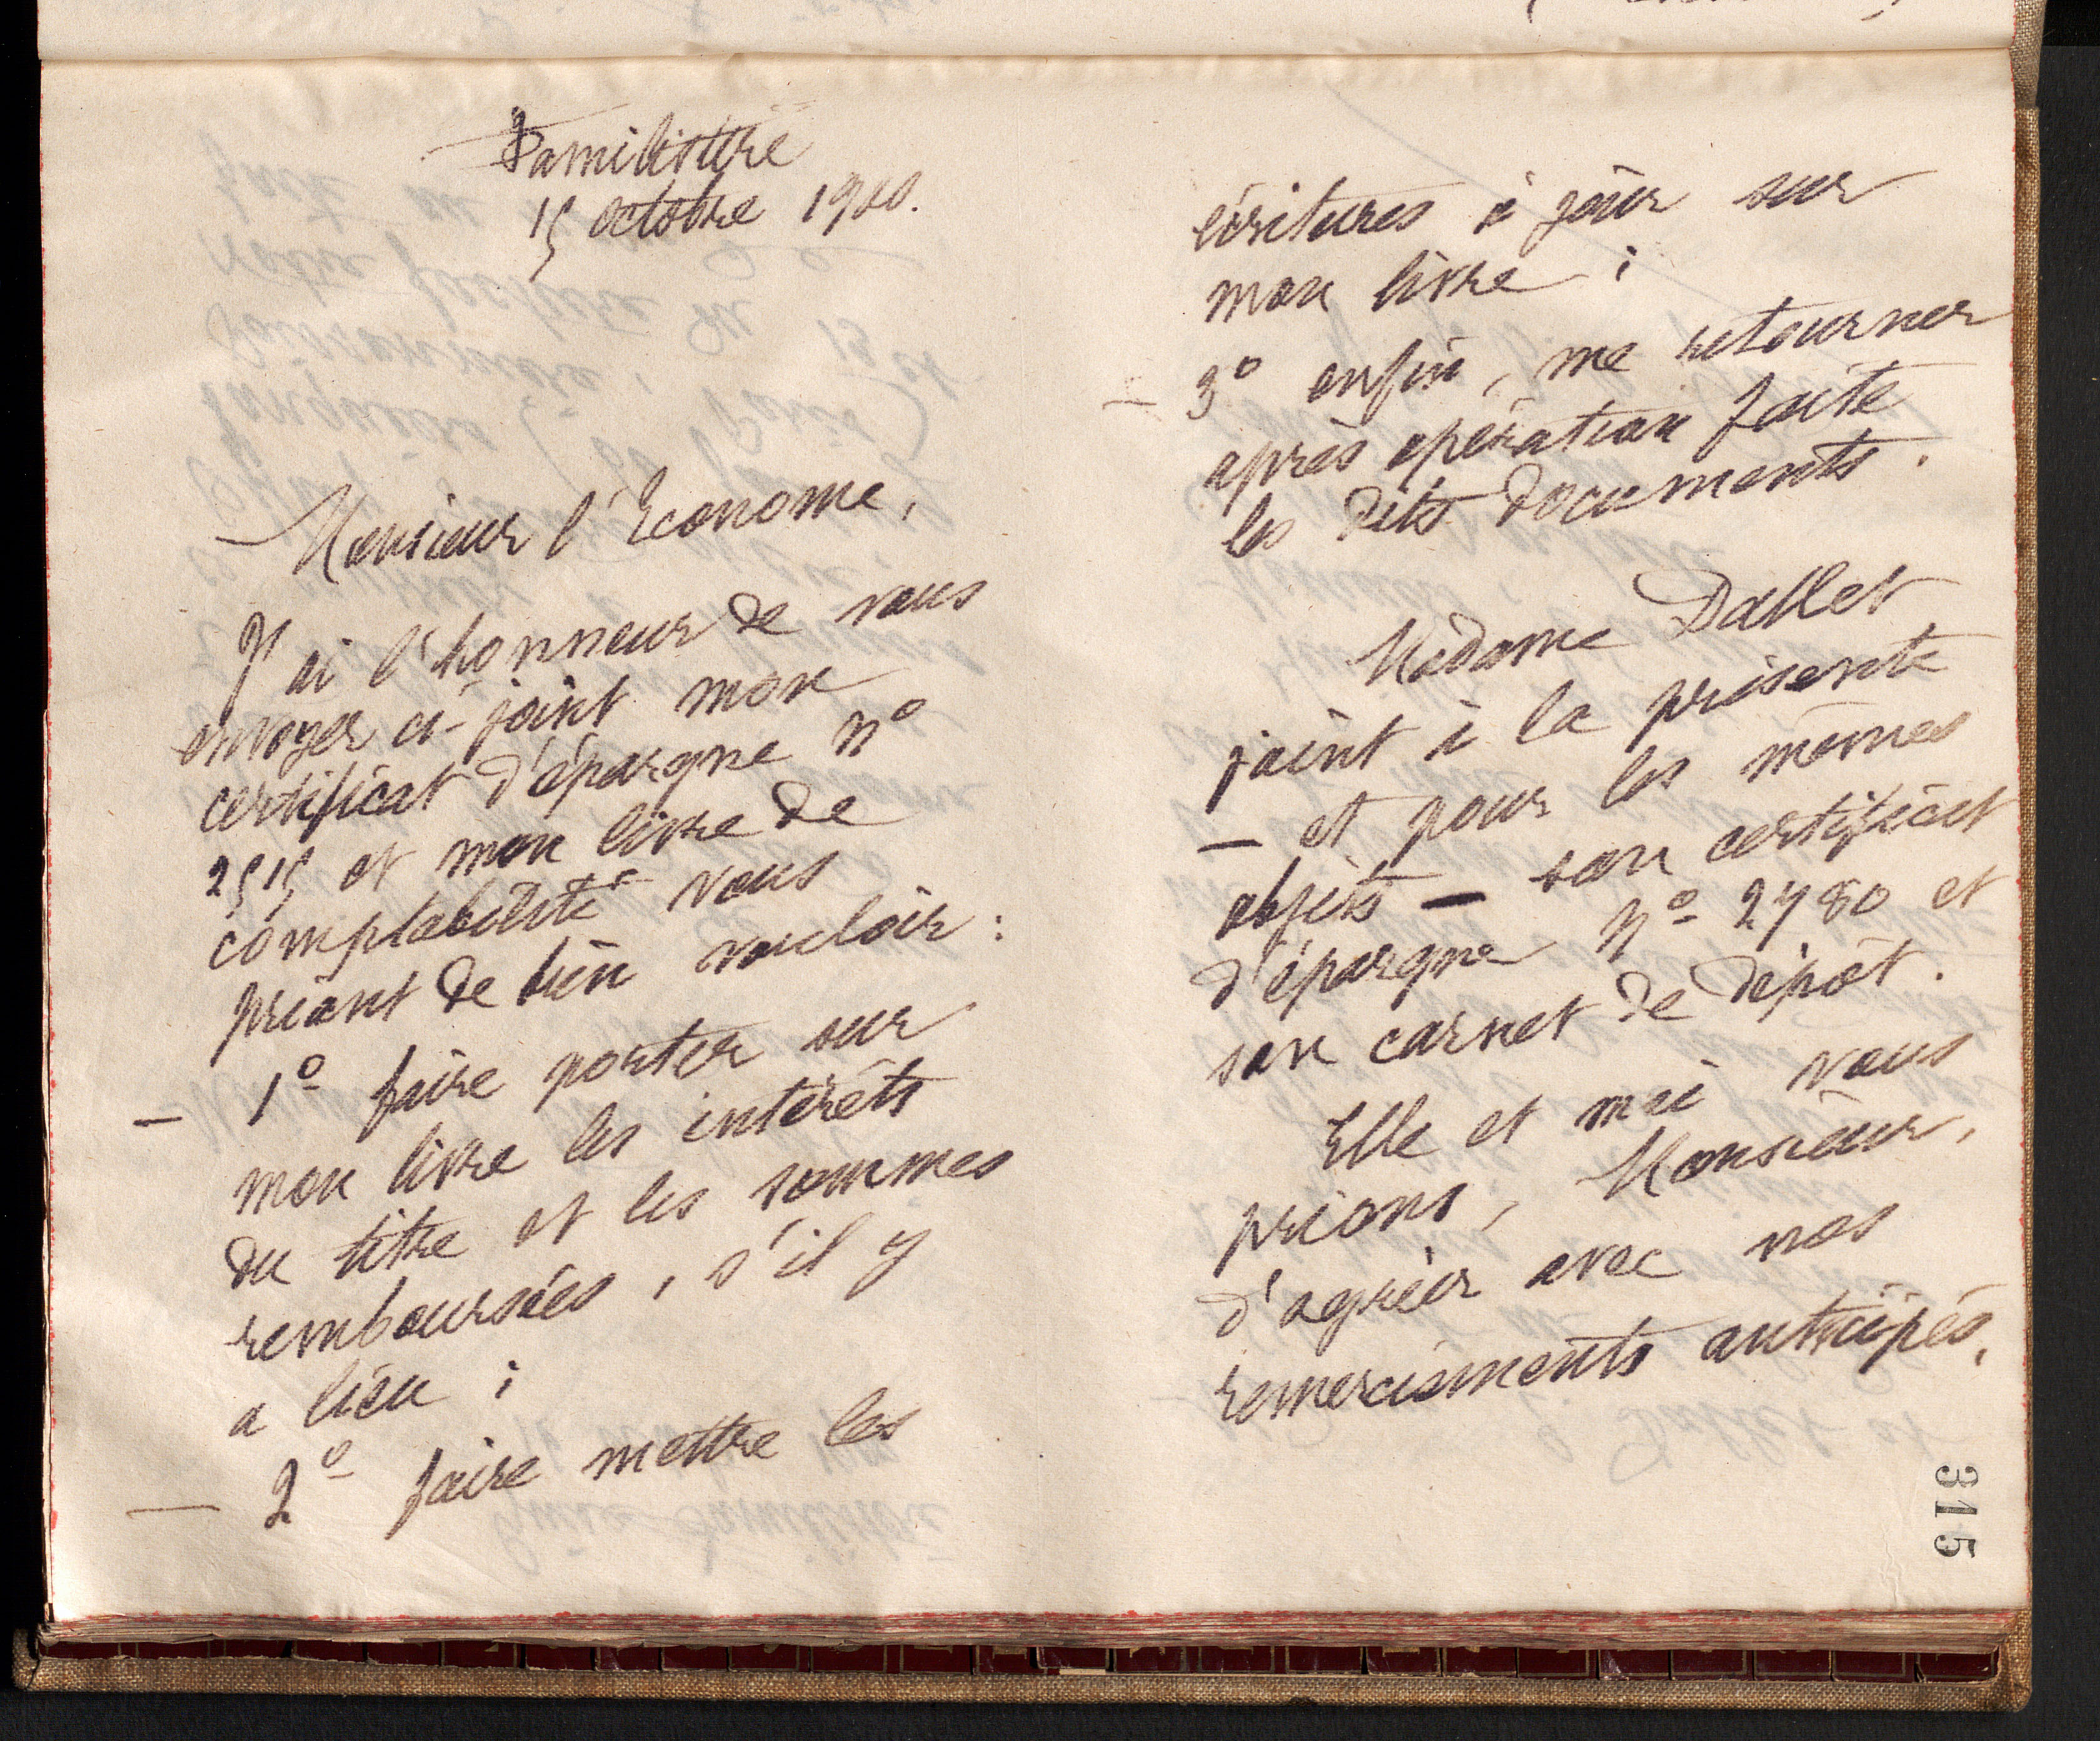 Familistère
15 octobre 1900.
Monsieur l'Econome,
J'ai l'honneur de vous
envoyer ci-joint mon
certificat d'épargne n°
2515 et mon livre de
comptabilité vous
priant de bien vouloir :
— 1° faire porter sur
mon livre les intérêts
du titre et les sommes
remboursées, s'il y
a lieu ;
— 2° faire mettre les
écritures à jour sur
mon livre ;
— 3° enfin, me retourner
après opération faite
les dits documents.
Madame Dallet
joint à la présente
— et pour les mêmes
objets — son certificat
d'épargne N° 2780 et
son carnet de dépôt.
Elle et moi vous
prions, Monsieur,
d'agréer avec nos
remerciements anticipés,
315